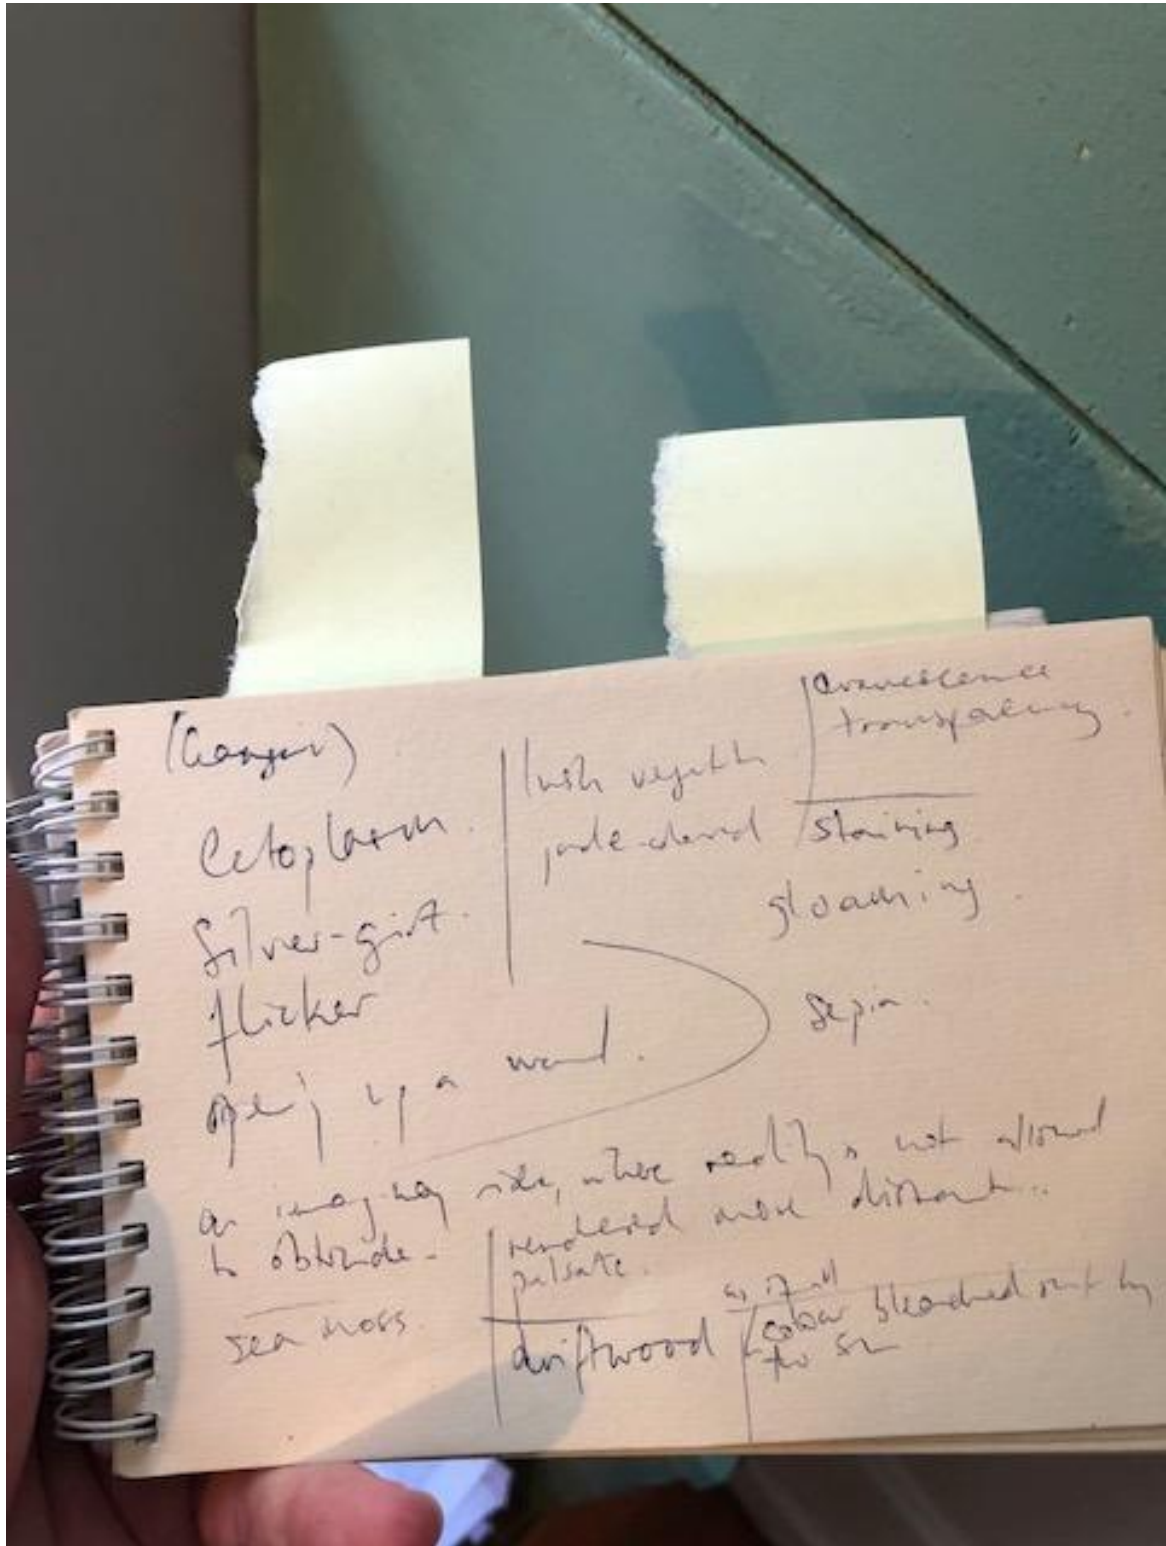 Ectoplasm.
Silver-gilt.
flicker
up a wand.
lush
jade-
evanescence
transparency.
staining
gloaming.
sepia.
an imaginary side, where reality is not allowed
to obtrude -
rendered more distant..
pulsate.
sea moss.
driftwood
as if all
colour bleached out by
the sun